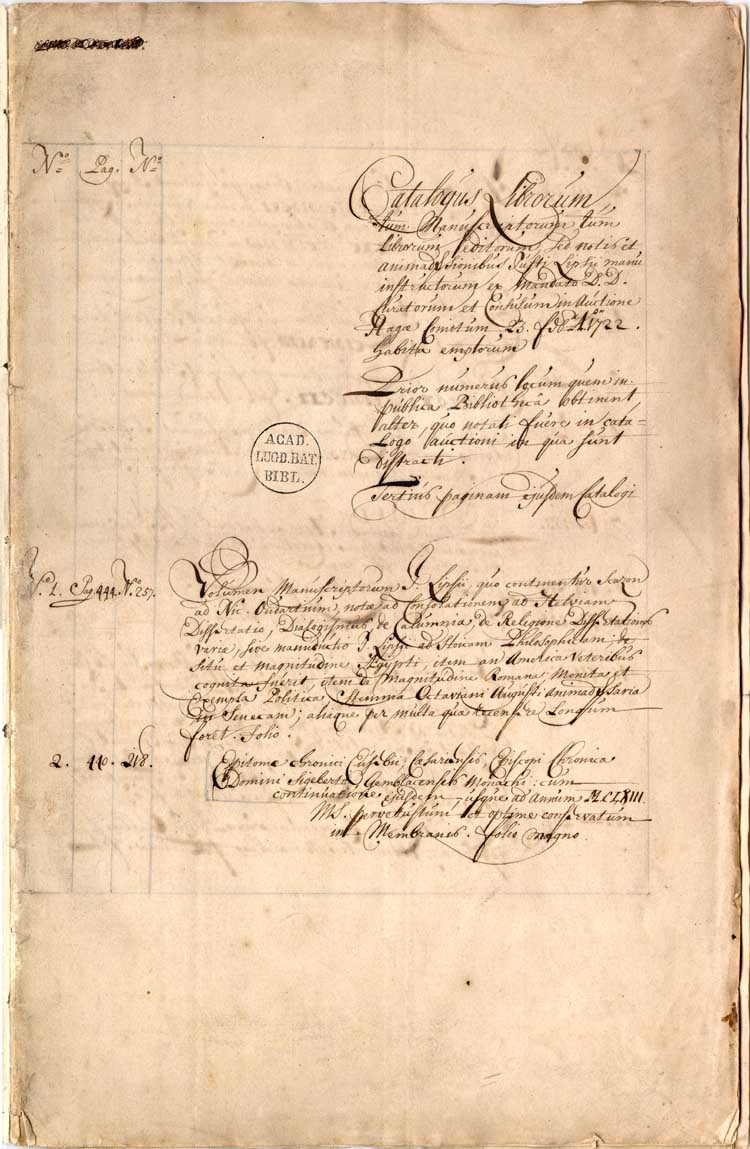 Nº Pag. Nº
Catalogus Librorum,
tum Manuscriptorum tum
Librorum editorum, sed notis et
animadversionibus Justi Lipsii manu
instructorum ex mandato D.D.
Curatorum et Consulum in Auctione
Hagæ Comitum 1722.
habita emptorum
Prior numerus locum quem in
publica Bibliothecâ obtinent
alter, quo notati fuere in cata-
logo auctioni in qua sunt
distracti.
Tertius paginam ejusdem Catalogi
ACAD.
LUGD.BAT.
BIBL.
Nº. 1. Pag. 444. Nº 257. Volumen Manuscriptorum J. Lipsii, quo continentur
ad Nic. Oudartum, notæ ad Consolationem ad Helviam
Dissertatio, Dialogismus de Calumnia, de Religione Dissertationes
variæ, sive manuductio J. Lipsii ad Stoicam Philosophiam: de
Situ et magnitudine Ægypti, item an America Veteribus
cognita fuerit, item de Magnitudine Romana, Monita et
Exempla Politica, Stemma Octaviani Augusti Animadversaria
in Senecam; aliaque per multa qua recensere Longum
foret. Folio.
2. 440. 218. Epitome Chronici Eusebii, Cæsariensis, Episcopi Chronica
Domini Sigeberti, Gemblacensis Monachi: cum
continuatione ejusdem, usque ad Annum MCLXIII.
MS. pervetustum et optime conservatum
in Membranis. folio magno.